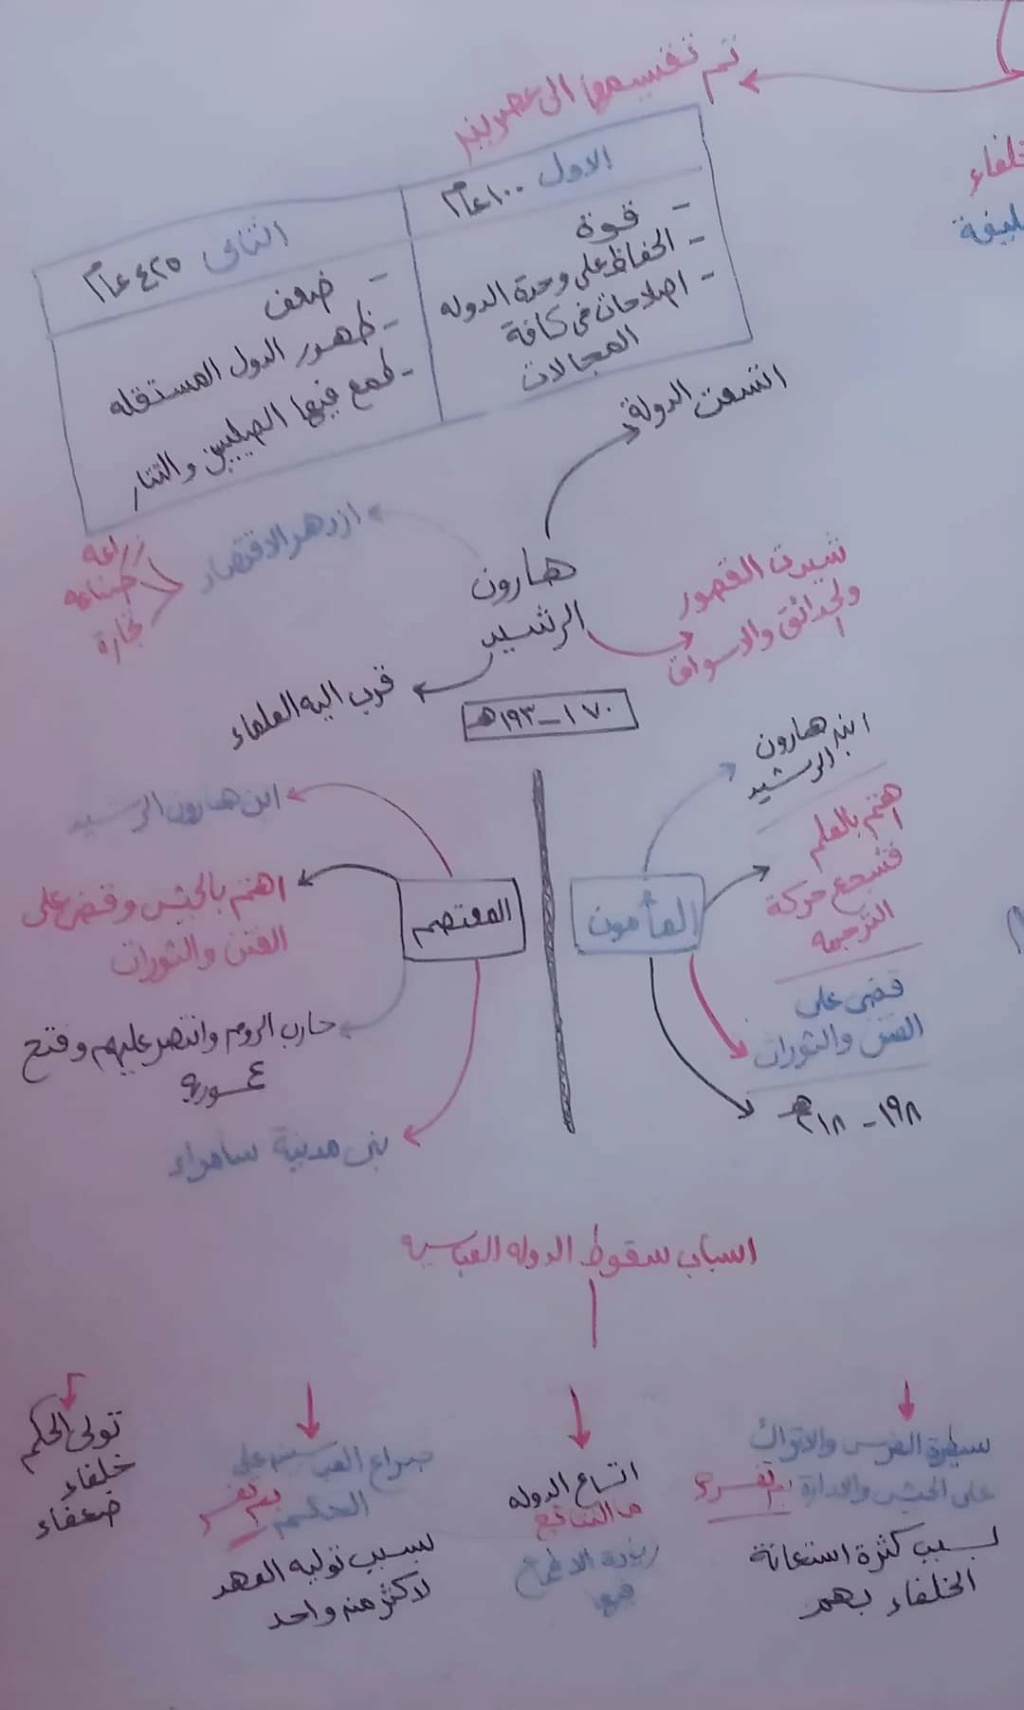 تم تقسيمها الى عصرين
خلفاء
خليفة
الاول ١٠٠ عام
- قوة
- الحفاظ على وحدة الدوله
- اصلاحات فى كافة
المجالات
الثانى ٤٢٥ عام
- ضعف
- ظهور الدول المستقله
- طمع فيها الصليبين والتتار
اتسعت الدولة
هارون
الرشيد
ازدهر الاقتصاد
زراعه
صناعه
تجارة
شيدت القصور
والحدائق والاسواق
قرب اليه العلماء
١٧٠ - ١٩٣ هـ
المأمون
ابن هارون
الرشيد
اهتم بالعلم
فشجع حركة
الترجمه
قضى على
الفتن والثورات
١٩٨ - ٢١٨ هـ
المعتصم
ابن هارون الرشيد
اهتم بالجيش وقضى على
الفتن والثورات
حارب الروم وانتصر عليهم وفتح
عمورية
بنى مدينة سامراء
اسباب سقوط الدوله العباسيه
سيطرة الفرس والاتراك
على الجيش والادارة بم تفسر؟
بسبب كثرة استعانة
الخلفاء بهم
اتساع الدوله
ما النتائج
زيادة الاطماع
فيها
صراع العباسين على
الحكم بم تفسر
بسبب توليه العهد
لاكثر من واحد
تولى الحكم
خلفاء
ضعفاء